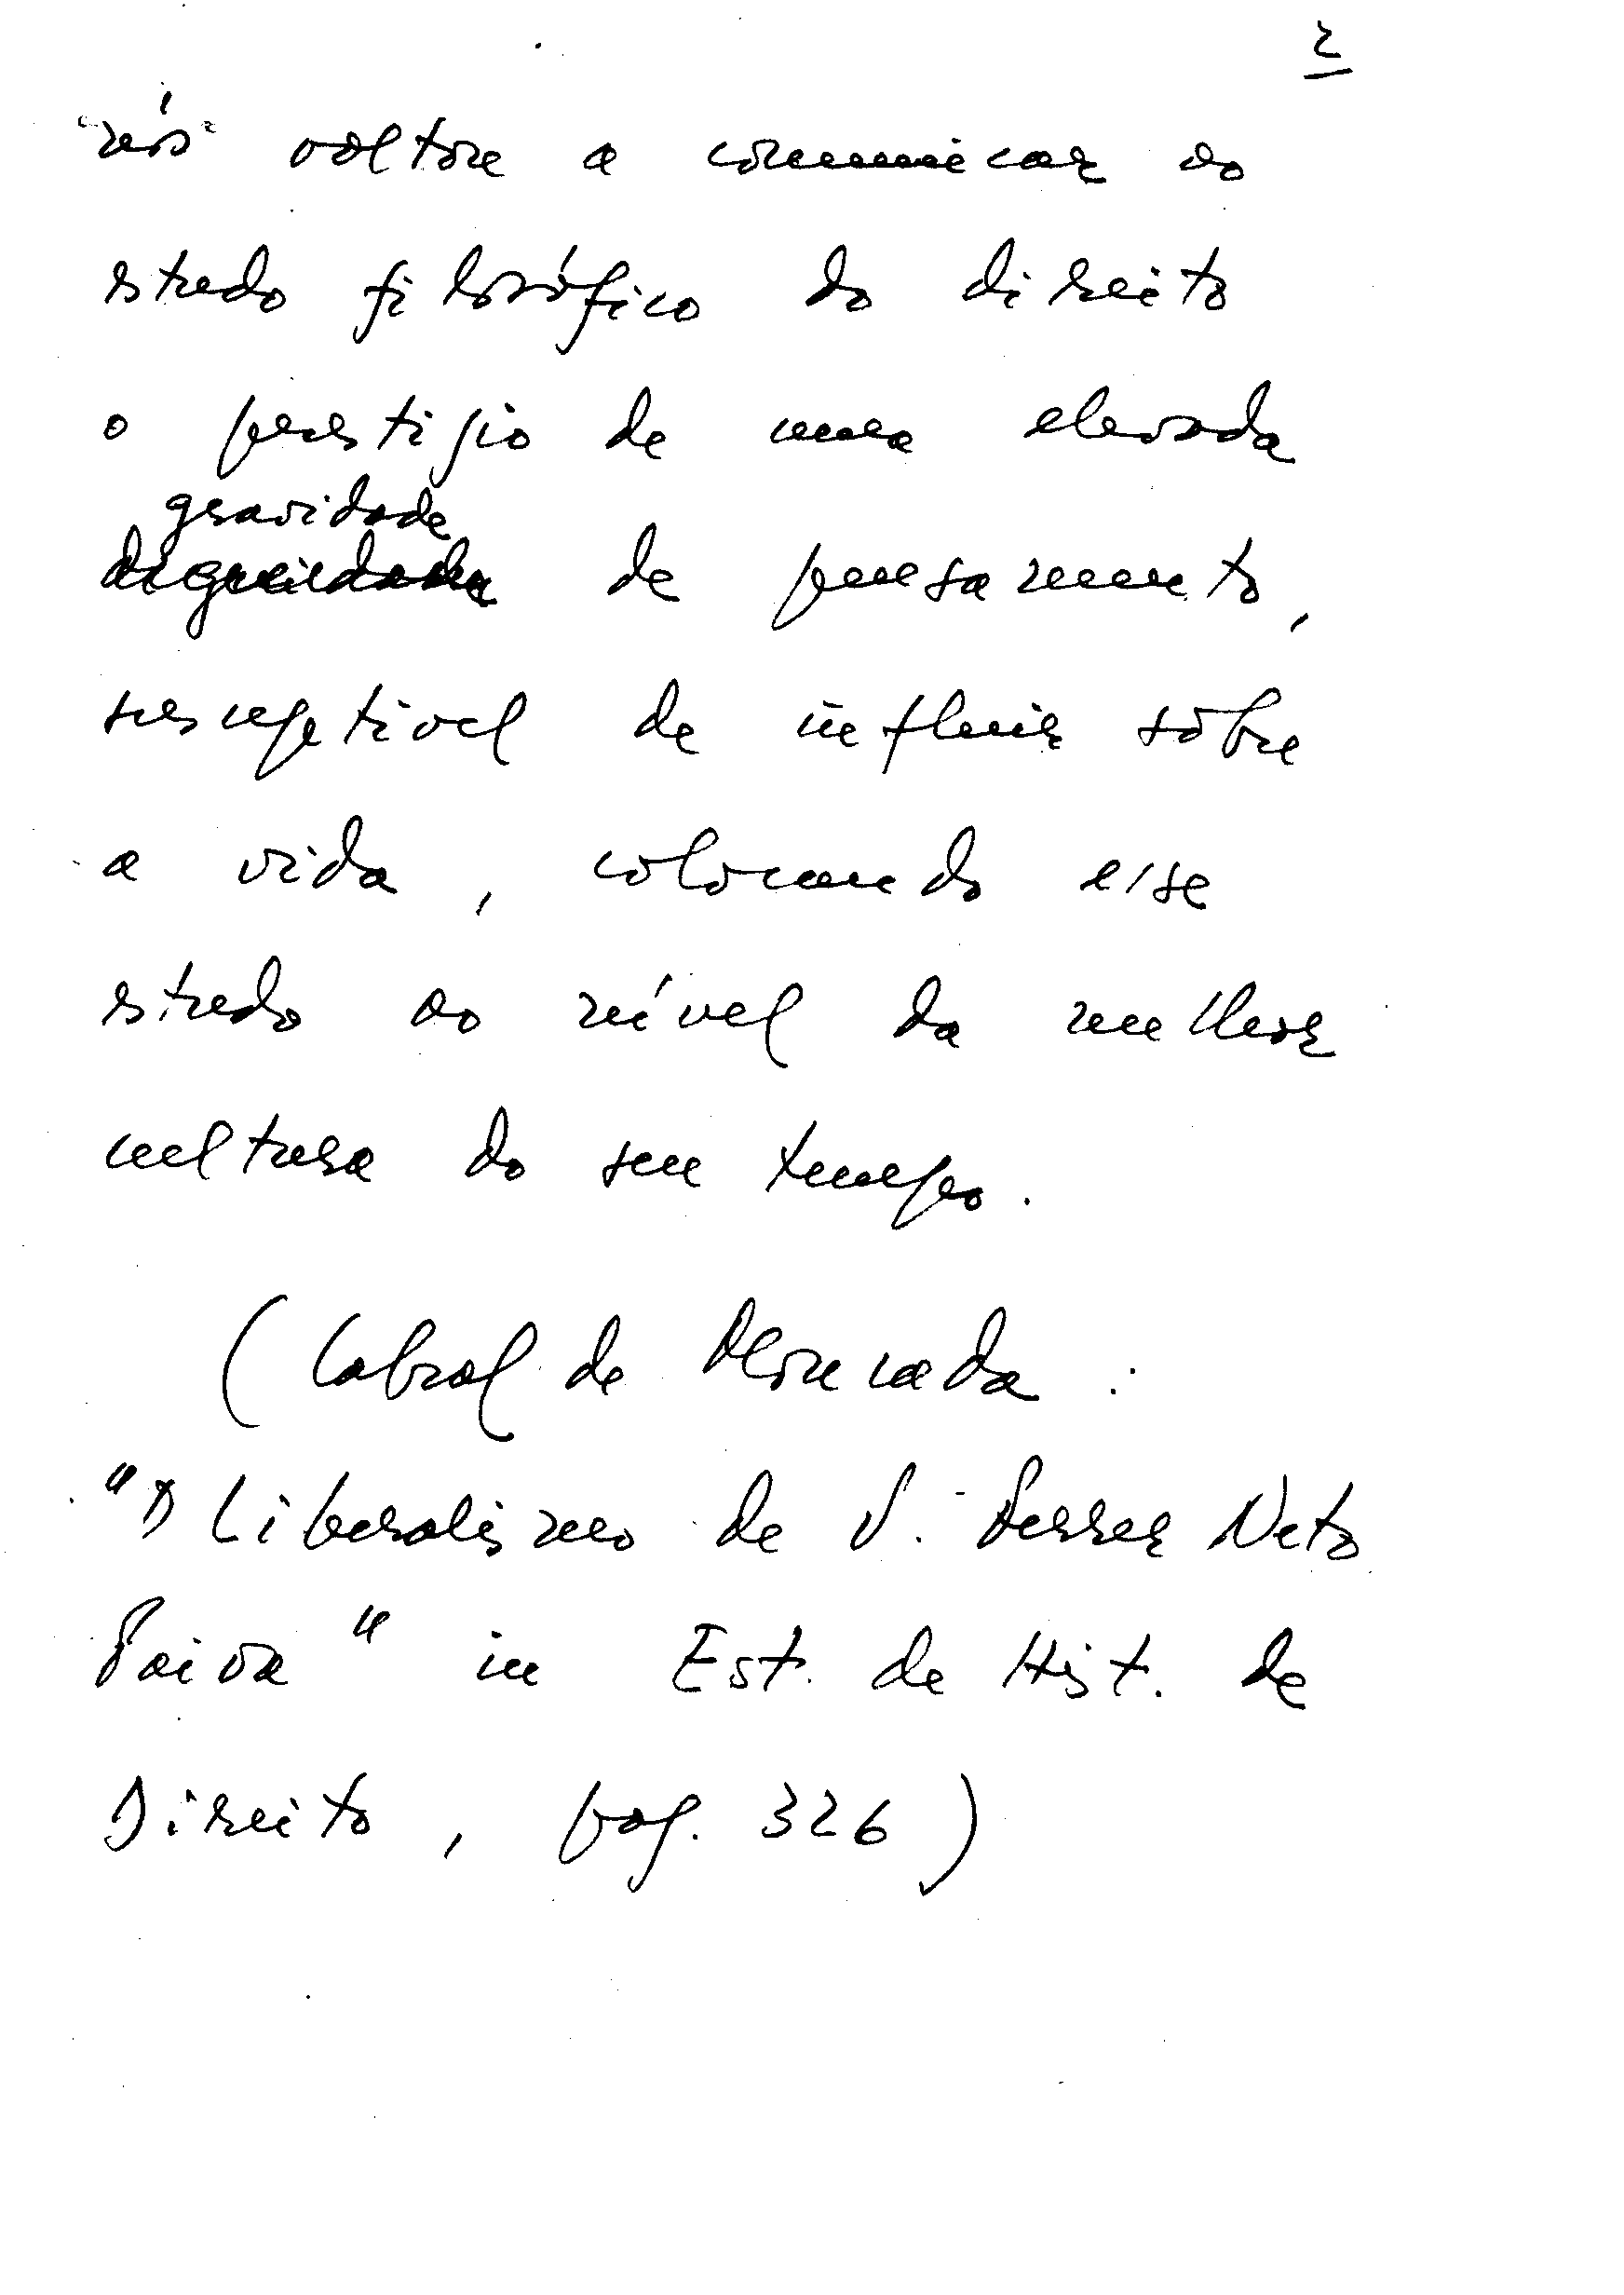 2
"nós" voltou a comunicar ao
estudo filosófico do direito
o prestígio de uma elevada
gravidade
dignidade de pensamento,
susceptivel de influir sôbre
a vida, colocando esse
estudo ao nível da melhor
cultura do seu tempo.
(Cabral de Moncada:
"O Liberalismo de V. Ferrer Neto
Paiva" in Est. de Hist. de
Direito, pag. 326)